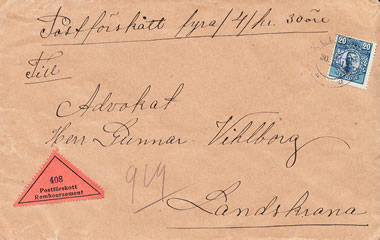 Postförskott fyra/4/kr. 30 öre
Till
20 20
Advokat
Herr Gunnar Vihlborg
408
Postförskott
Remboursement
919
Landskrona